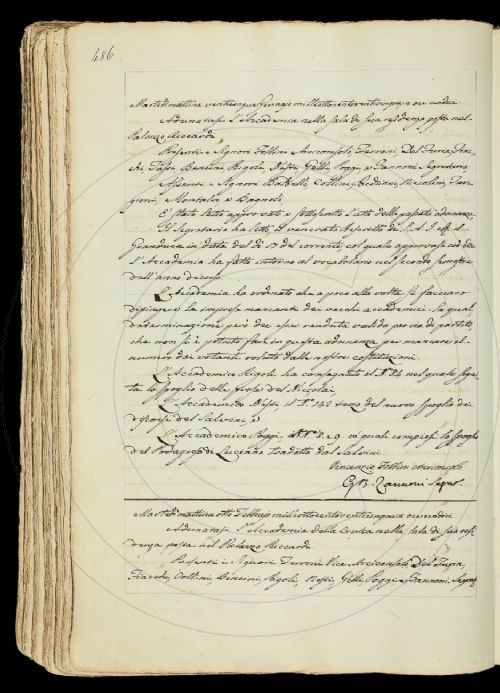 486
Martedì mattina venticinque Gennajo milleottocentoventicinque a ore undici
Adunatasi l'Accademia nella sala di sua residenza posta nel
Palazzo Riccardi
Presenti i Signori Follini Arciconsolo, Ferroni, Del Furia, Fiac-
chi, Tassi, Bencini, Rigoli, Nesti, Gelli, Poggi, e Zannoni Segretario
Assenti i Signori Collini, Niccolini,
Montalvi e Bagnoli
E' stato letto approvato e sottoscritto l'atto della passata adunanza.
Il Segretario ha letto il venerato Rescritto di S. A. I. e R. il
Granduca in data del dì 17 del corrente col quale approvasi ciò che
l'Accademia ha fatto intorno al vocabolario nel secondo semestre
dell'anno decorso
L'Accademia ha ordinato che a poco alla volta si facciano
dipingere le imprese mancanti dei vecchi accademici: la qual
determinazione però dee esser renduta valida per via di partito,
che non si è potuto fare in questa adunanza per mancare il
numero dei votanti voluto dalle nostre costituzioni.
L'Accademico Rigoli ha consegnato il N.° 84 nel quale segui-
ta lo spoglio delle prose del Nicolai,
L'Accademico Nesti, il N.° 142 terzo del nuovo spoglio dei
discorsi del Salvini, e
L'Accademico Poggi, i N.i 8. e 9 coi quali compiesi lo spoglio
del Podagroso di Luciano tradotto dal Salvini.
Vincenzio Follini Arciconsolo
G. B. Zannoni Segret.
Martedì mattina otto Febbrajo milleottocentoventicinque a ore undici
Adunatasi l'Accademia della Crusca nella sala di sua resi-
denza posta nel Palazzo Riccardi
Presenti i Signori Ferroni Vice-Arciconsolo, Del Furia,
Fiacchi, Collini, Bencini, Rigoli, Nesti, Gelli, Poggi e Zannoni Segreto